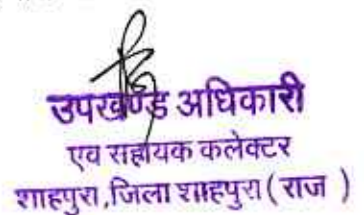 उपखण्ड अधिकारी
एव सहायक कलेक्टर
शाहपुरा,जिला शाहपुरा (राज )